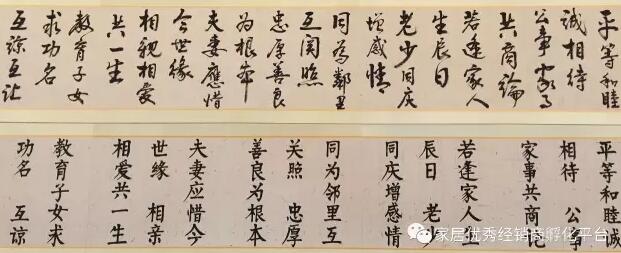 平等和睦
誠相待
公事家事
共商論
若逢家人
生辰日
老少同庆
增感情
同為鄰里
互関照
忠厚善良
為根本
夫妻應惜
今世緣
相親相爱
共一生
教育子女
求功名
互諒互让
平等和睦诚
相待 公事
家事共商论
若逢家人生
辰日 老少
同庆增感情
同为邻里互
关照 忠厚
善良为根本
夫妻应惜今
世缘 相亲
相爱共一生
教育子女求
功名 互谅
家居优秀经销商孵化平台